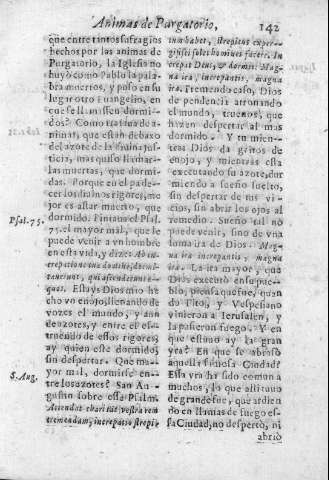 Animas de Purgatorio,
142
que entre tantos sufragios
hechos por las animas de
Purgatorio, la Iglesia no
huyò como Pablo la pala-
bra muertos, y puso en su
lugar otro Euangelio, en
que se llamassen dormi-
dos? Como trataua de a-
nimas, que estàn debaxo
del azote de la diuina jus-
ticia, mas quiso llamar-
las muertas, que dormi-
das. Porque en el pade-
cer los diuinos rigores, me-
jor es astar muerto, que
dormido. Pintaua el Psal.
75. el mayor mal, que le
puede venir a vn hombre
en esta vida, y dize: Ab in-
crepatione tua
qui ascenderunt e-
quos. Estays Dios mio he-
cho vn enojo, llenando de
vozes el mundo, y ann
de azotes, y entre el es-
truendo de essos rigores,
ay quien este dormido,
sin despertar. Que ma-
yor mal, dormirse en-
tre los azotes? San Au-
gustin sobre este Psalm.
Attendat charitas vestra rem
tremendam; increpatio strepi-
Psal. 75.
S. Aug.
tum habet, strepitus exper-
gisci solet homines facere. In-
crepat Deus, & dormit. Mag-
na ira, increpantis, magna
ira. Tremendo caso, Dios
de pendencia atronando
el mundo, truenos, que
hazen despertar al mas
dormido. Y tu mien-
tras Dios da gritos de
enojo, y mientras esta
executando su azote, dur
miendo a sueño suelto,
sin despertar de tus vi-
cios, sin abrir los ojos al
remedio. Sueño tal no
puede venir, sino de vna
ira de Dios. Mag-
na ira increpantis, magna
ira. La ira mayor, que
Dios executò en su pue-
blo, piensa que fue, quan
do Tito, y Vespesiano
vinieron a Ierusalen, y
la pusieron fuego. Y en
que estuuo ay la gran
yra? En que se abrasò
aquella famosa Ciudad?
Essa yra ha sido comun a
muchos, lo que assi tuuo
de grande fue, que ardien
do en llamas de fuego es-
sa Ciudad, no despertò, ni
abriò